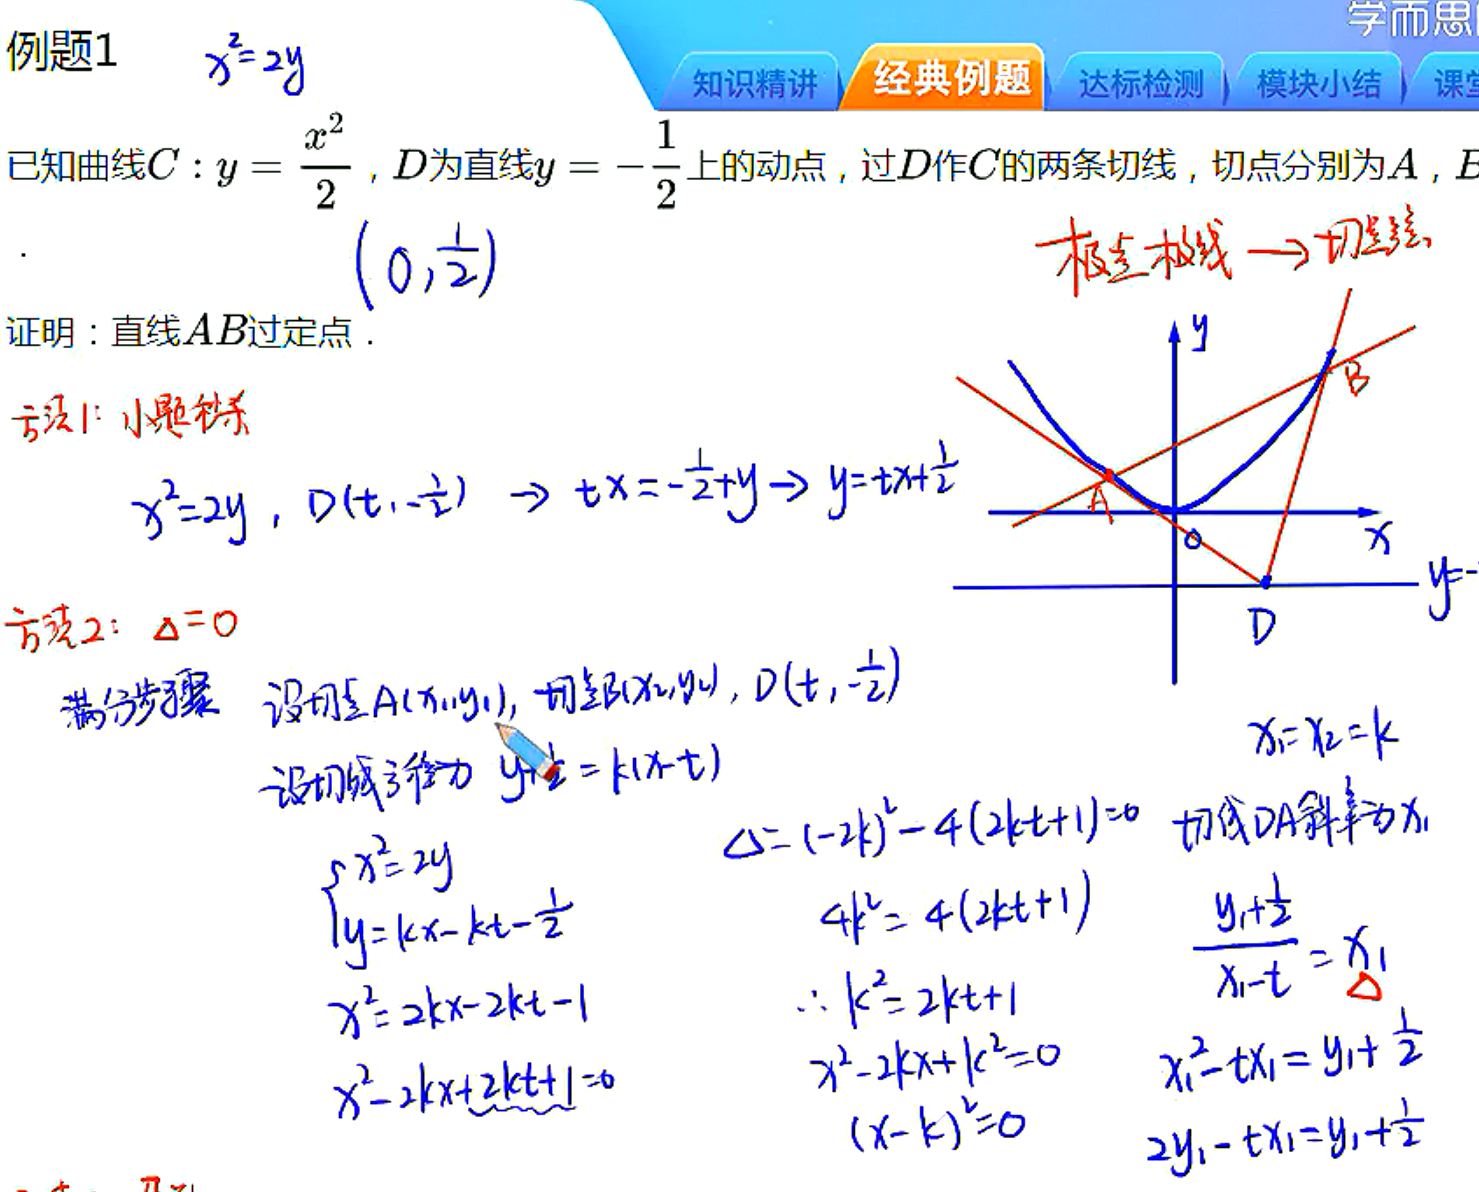 学而思
例题1
x²=2y
知识精讲 经典例题 达标检测 模块小结 课堂
已知曲线C : y = x²/2 , D为直线y = -1/2上的动点 , 过D作C的两条切线 , 切点分别为A , B
.
(0, 1/2)
极点极线 → 切点弦
证明 : 直线AB过定点 .
方法1: 小题秒杀
x²=2y , D(t, -1/2) → tx = -1/2+y → y=tx+1/2
y
B
A
O
x
y=-
D
方法2: Δ=0
满分步骤 设切点A(x₁,y₁), 切点B(x₂,y₂), D(t, -1/2)
设切线方程为 y+1/2 = k(x-t)
{ x²=2y
y=kx-kt-1/2
x²=2kx-2kt-1
x²-2kx+2kt+1=0
Δ=(-2k)²-4(2kt+1)=0
4k²=4(2kt+1)
∴ k²=2kt+1
x²-2kx+k²=0
(x-k)²=0
x₁=x₂=k
切线DA斜率为x₁
(y₁+1/2)/(x₁-t) = x₁
Δ
x₁²-tx₁=y₁+1/2
2y₁-tx₁=y₁+1/2